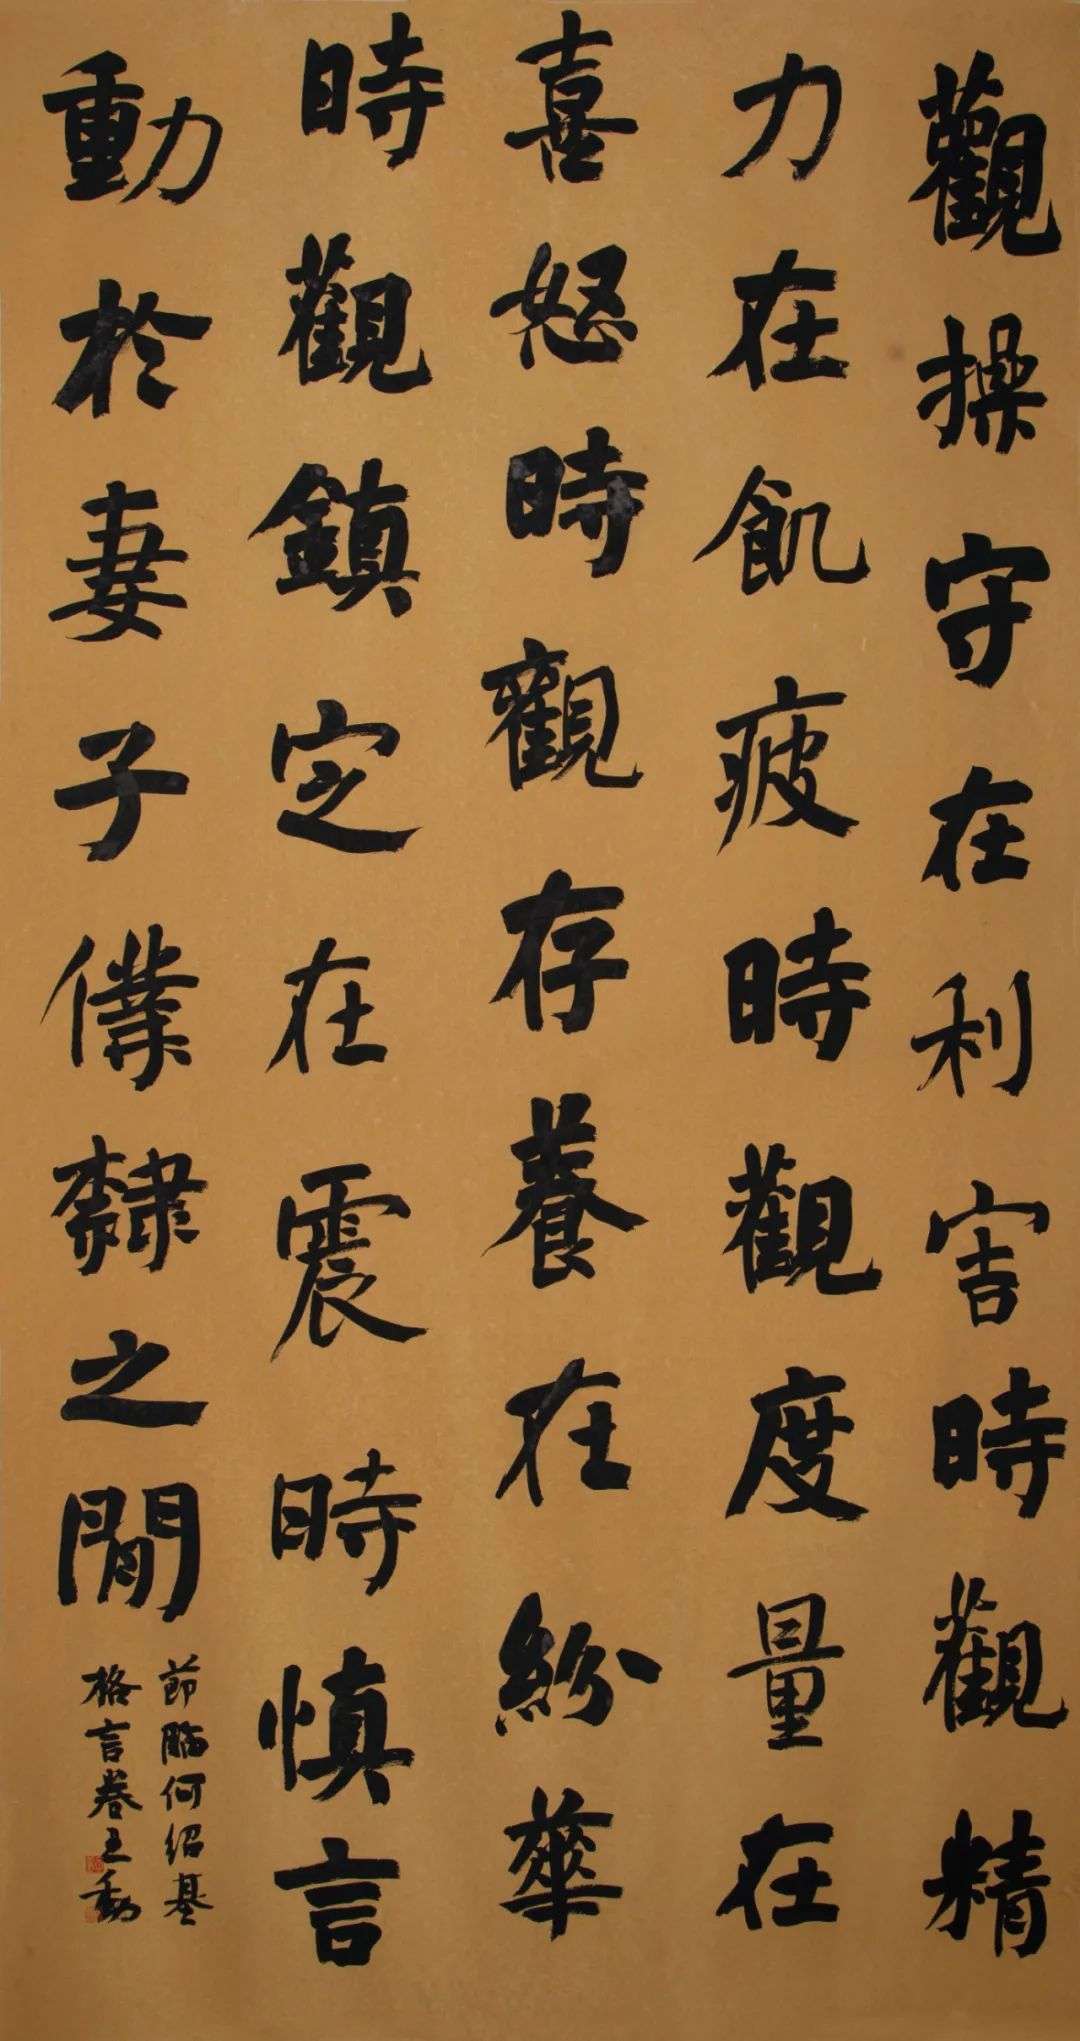 觀操守在利害時觀精
力在飢疲時觀度量在
喜怒時觀存養在紛華
時觀鎮定在震時慎言
動於妻子僕隸之閒
節臨何紹基
格言卷王勤